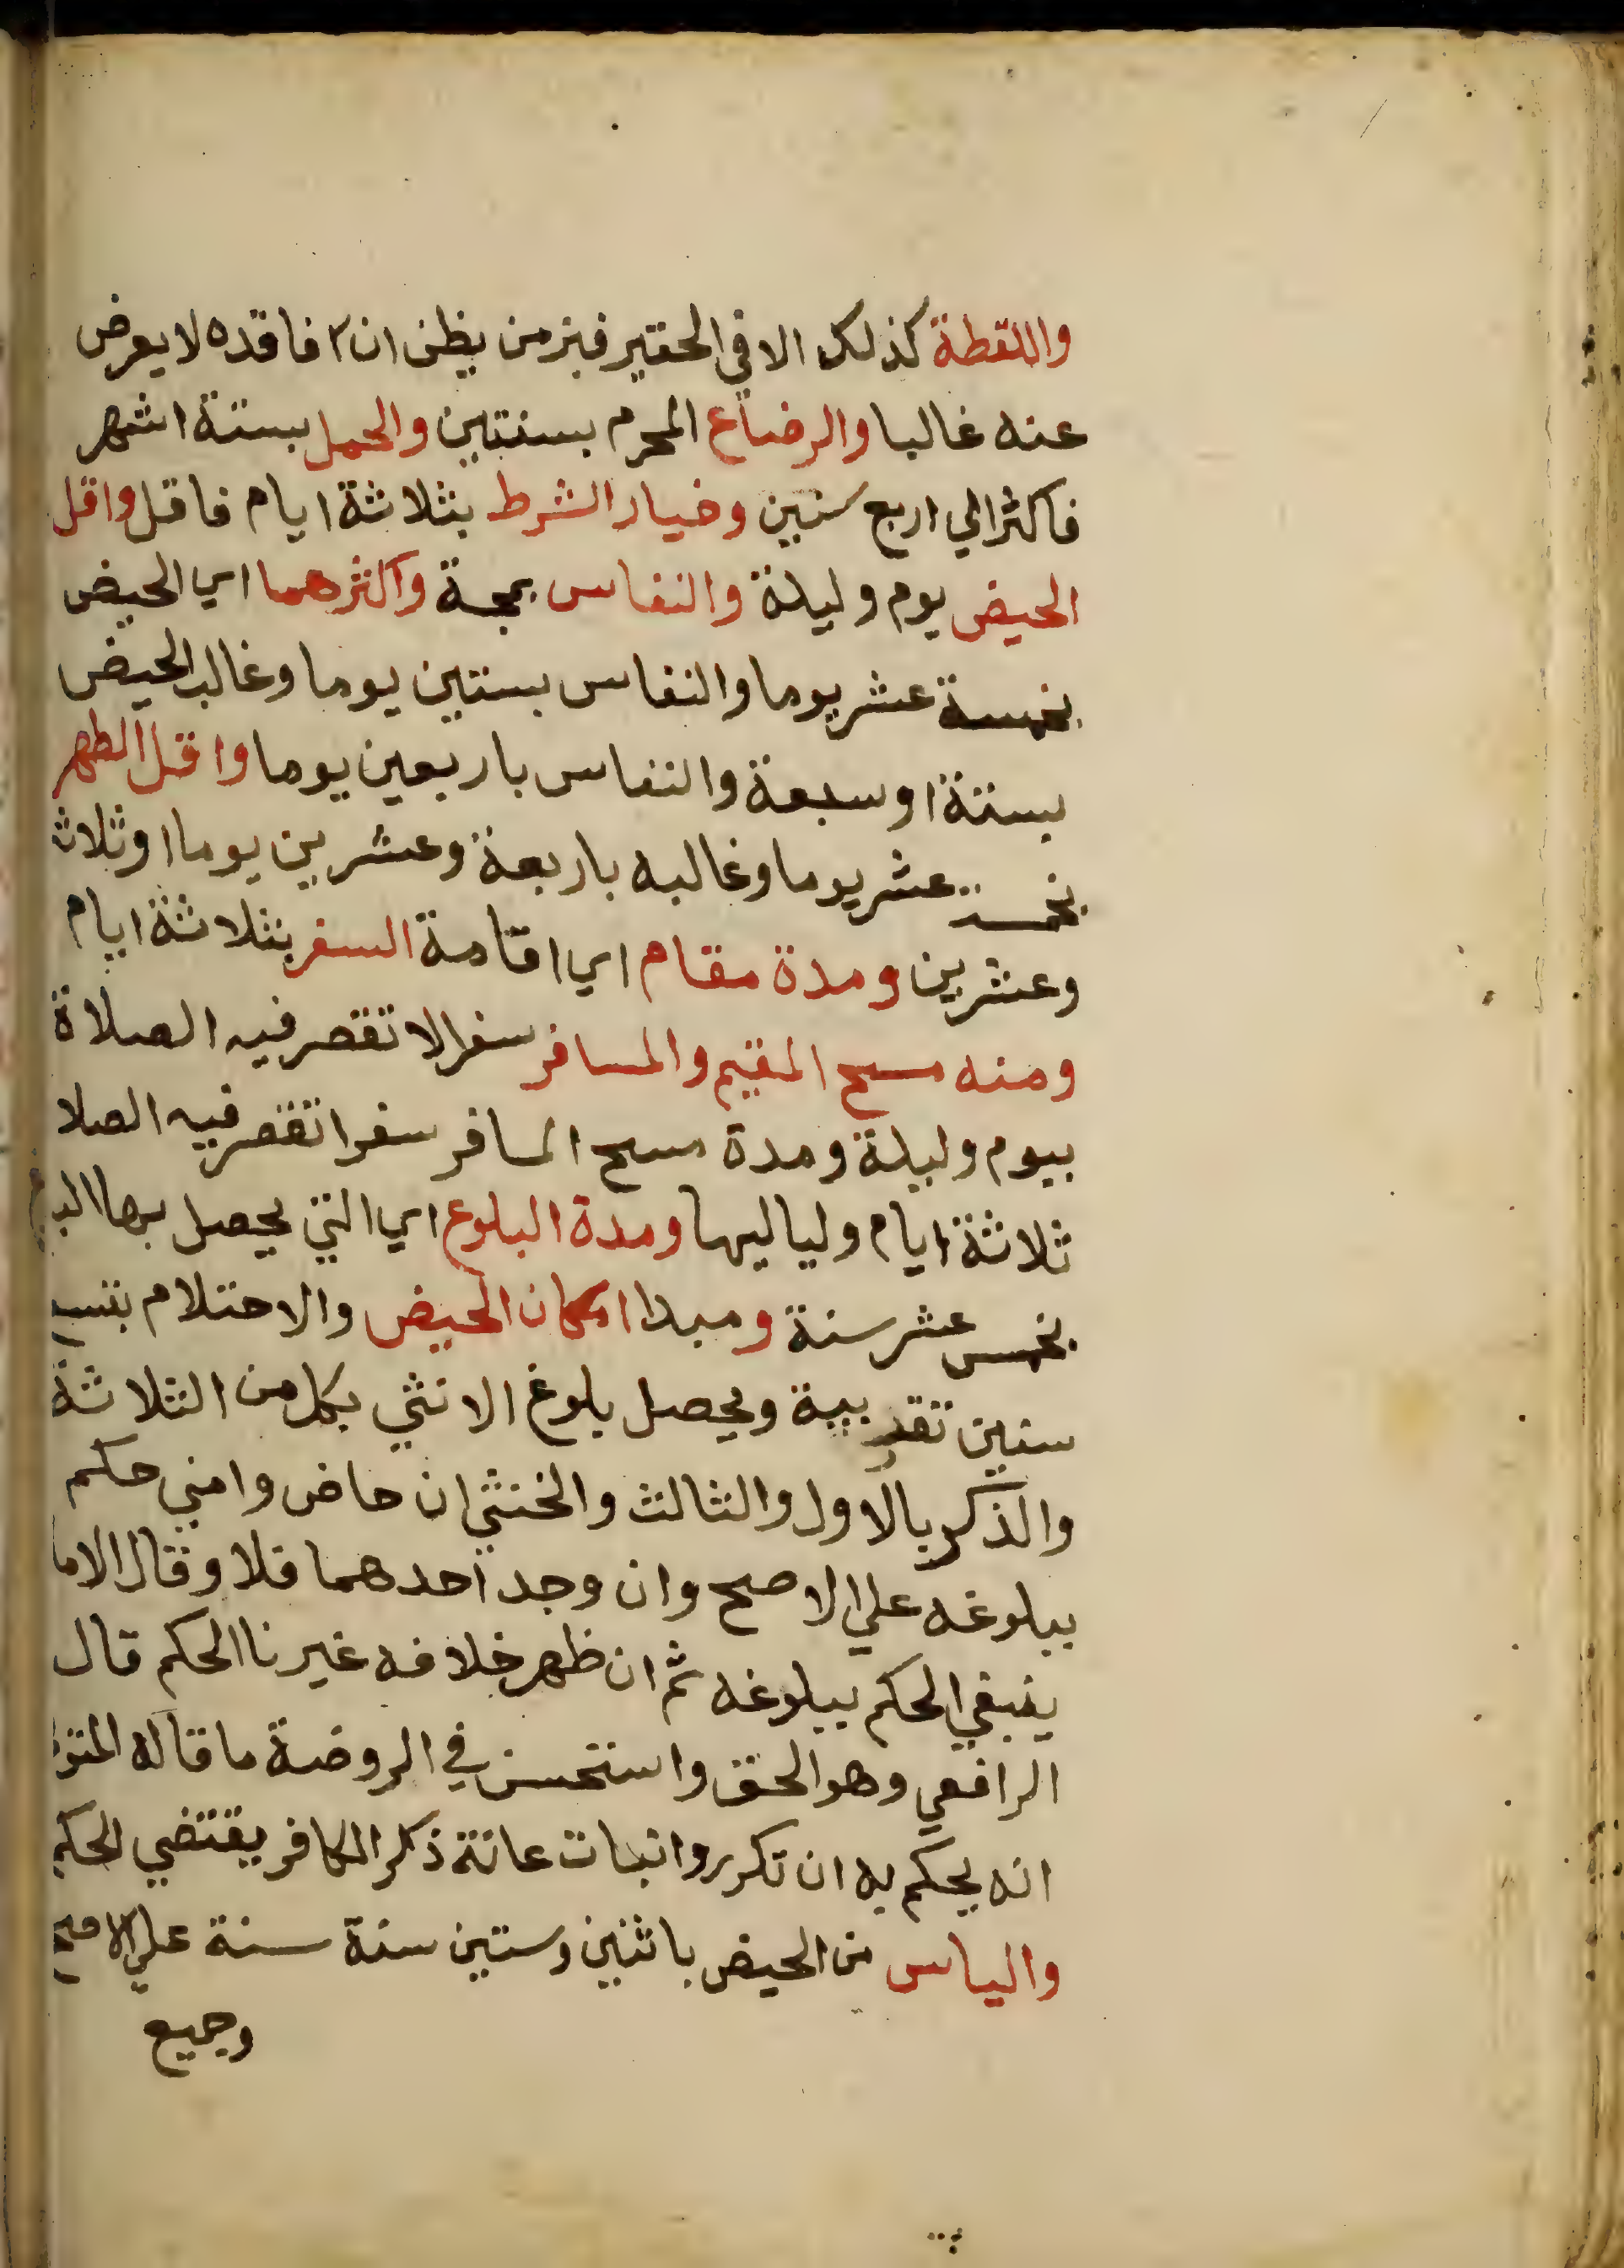 واللقطة كذلك الا في الحقير فبزمن يظن ان فاقده لا يعرض
عنه غالبا والرضاع المحرم بسنتين والحمل بستة اشهر
فاكثر الي اربع سنين وخيار الشرط بثلاثة ايام فاقل واقل
الحيض يوم وليلة والنفاس بمجة واكثرهما اي الحيض
بخمسة عشر يوما والنفاس بستين يوما وغالب الحيض
بستة او سبعة والنفاس باربعين يوما واقل الطهر
بخمسة عشر يوما وغالبه باربعة وعشرين يوما او ثلاث
وعشرين ومدة مقام اي اقامة السفر بثلاثة ايام
ومنه مسح المقيم والمسافر سفرا لا تقصر فيه الصلاة
بيوم وليلة ومدة مسح المسافر سفرا تقصر فيه الصلا
ثلاثة ايام ولياليها ومدة البلوغ اي التي يحصل بها
بخمس عشر سنة ومبدا امكان الحيض والاحتلام بتسع
سنين تقريبية ويحصل بلوغ الانثي بكل من الثلاثة
والذكر بالاول والثالث والخنثي ان حاض وامني حكم
ببلوغه علي الاصح وان وجد احدهما فلا وقال الاما
ينبغي الحكم ببلوغه ثم ان ظهر خلافه غيرنا الحكم قال
الرافعي وهو الحق واستحسن في الروضة ما قاله المتو
انه يحكم به ان تكرر وانبات عانة ذكر الكافر يقتضي الحكم
والياس من الحيض باثنين وستين سنة سنة علي الاصح
وجميع